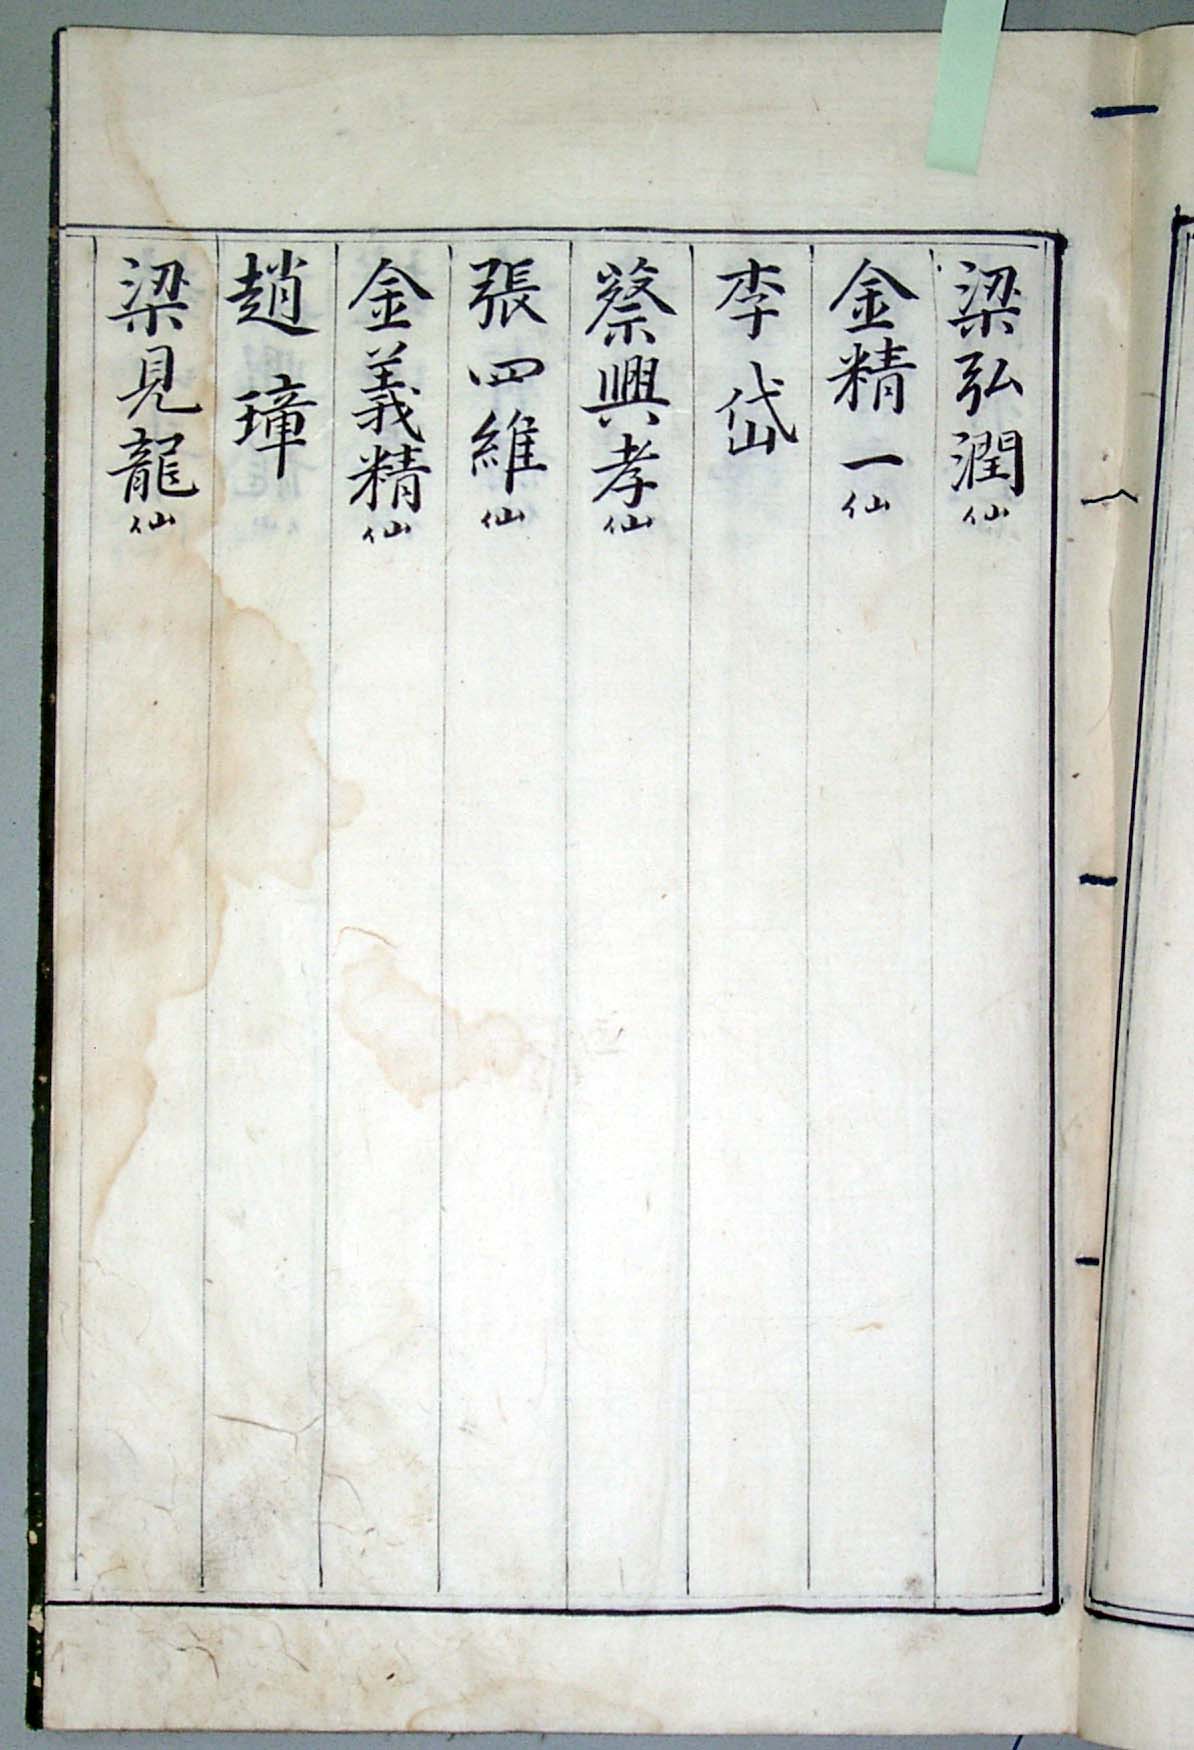 梁弘潤仙
金精一仙
李岱
蔡興孝仙
張四維仙
金義精仙
趙璋
梁見龍仙